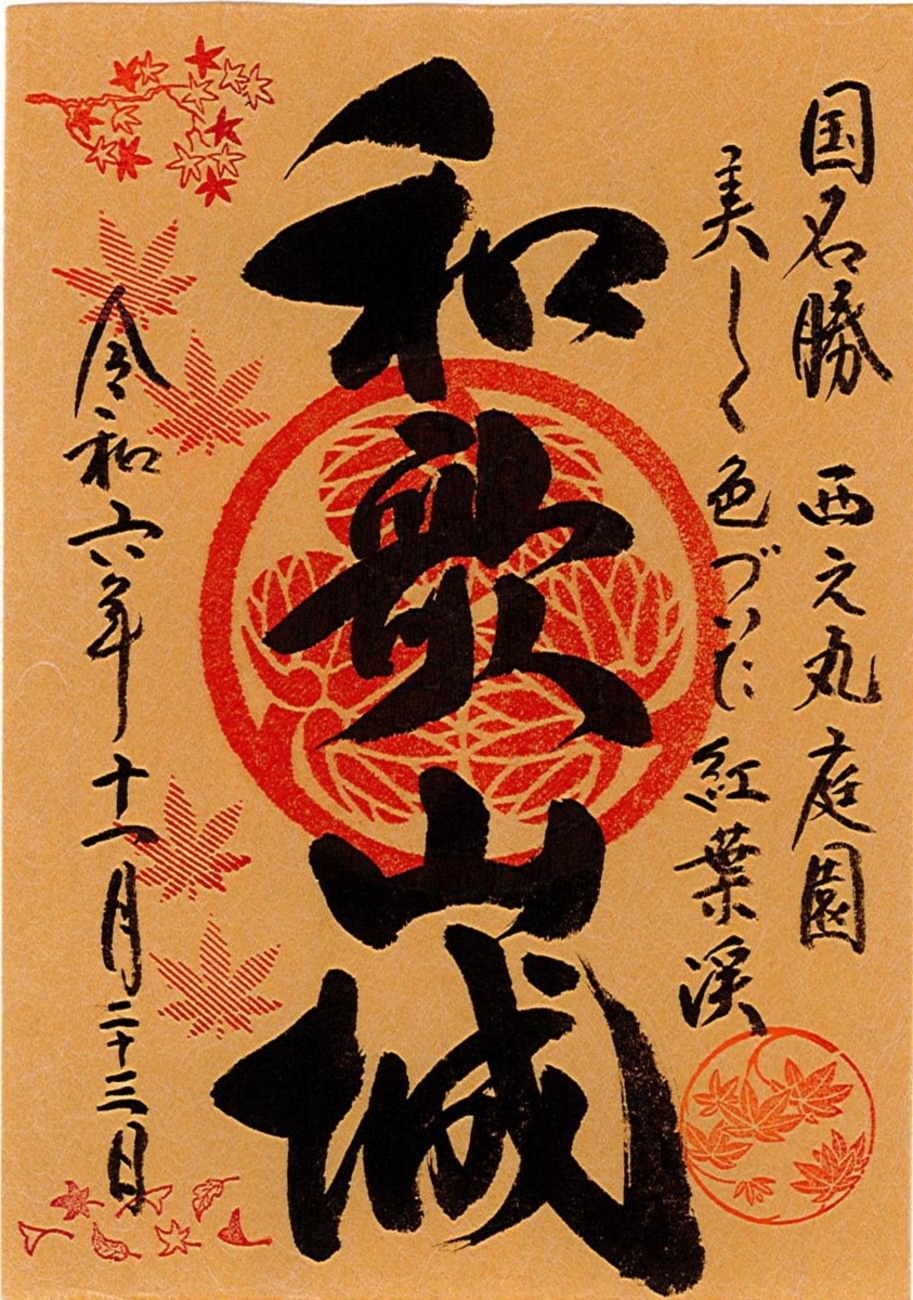 国名勝　西之丸庭園
美しく色づいた紅葉渓
和歌山城
令和六年十一月二十三日